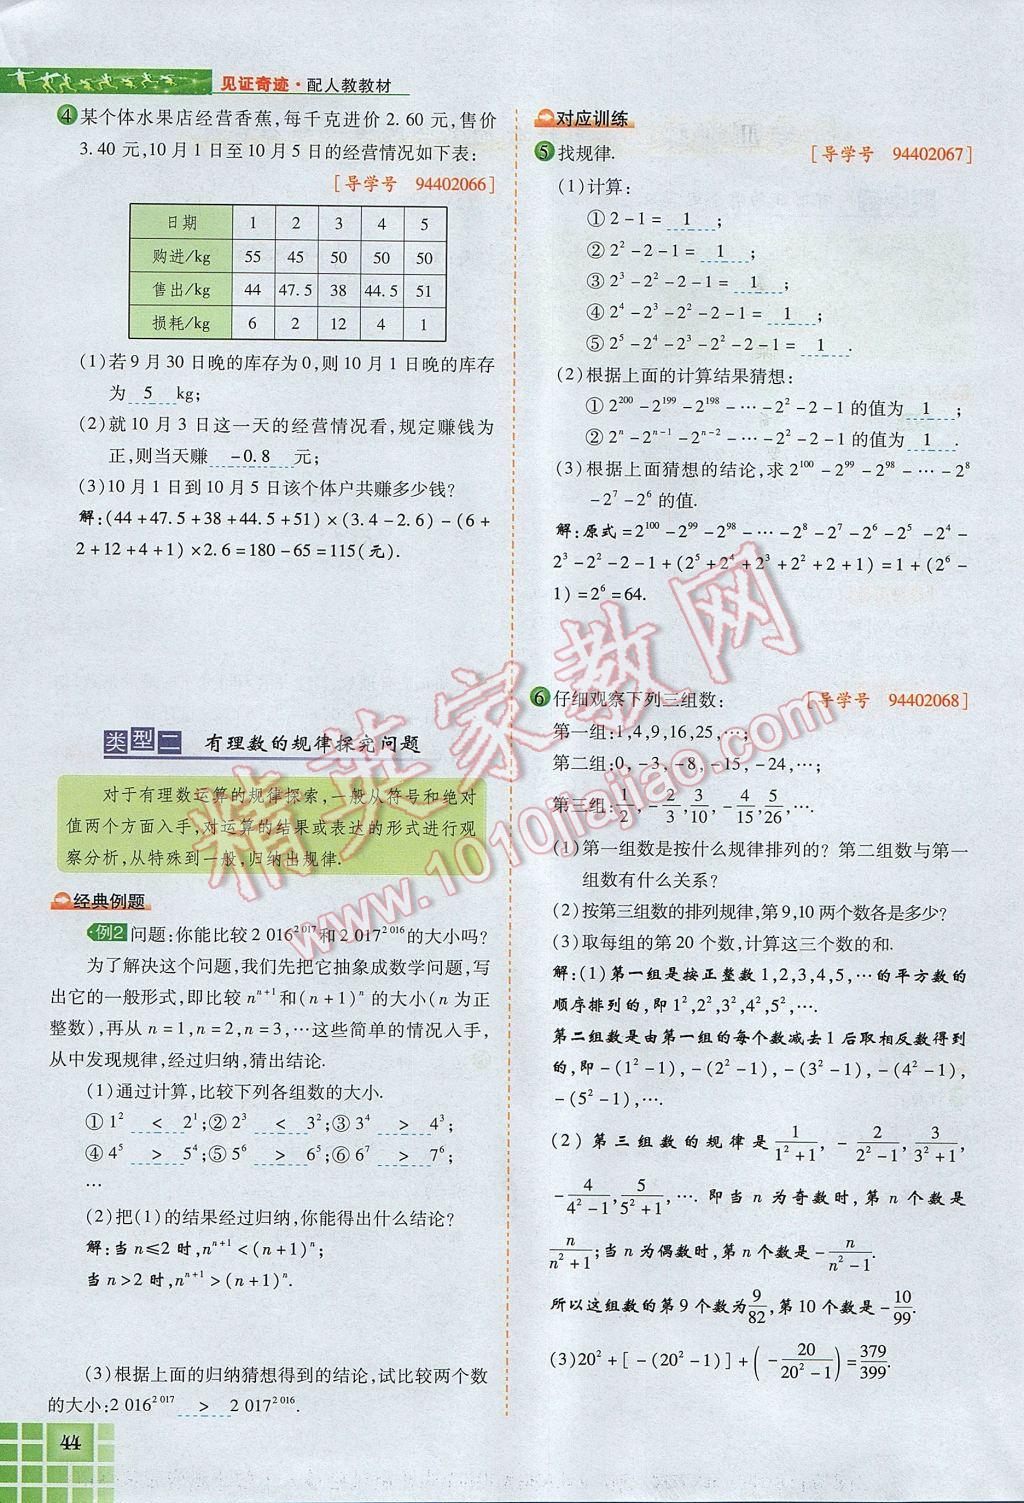 见证奇迹·配人教教材
4 某个体水果店经营香蕉,每千克进价2.60元,售价
3.40元,10月1日至10月5日的经营情况如下表:
[导学号 94402066]
日期 1 2 3 4 5
购进/kg 55 45 50 50 50
售出/kg 44 47.5 38 44.5 51
损耗/kg 6 2 12 4 1
(1)若9月30日晚的库存为0,则10月1日晚的库存
为 5 kg;
(2)就10月3日这一天的经营情况看,规定赚钱为
正,则当天赚 -0.8 元;
(3)10月1日到10月5日该个体户共赚多少钱?
解:(44+47.5+38+44.5+51)×(3.4-2.6)-(6+
2+12+4+1)×2.6=180-65=115(元).
类型二 有理数的规律探究问题
对于有理数运算的规律探索,一般从符号和绝对
值两个方面入手,对运算的结果或表达的形式进行观
察分析,从特殊到一般,归纳出规律.
经典例题
例2 问题:你能比较2 016^{2 017}和2 017^{2 016}的大小吗?
为了解决这个问题,我们先把它抽象成数学问题,写
出它的一般形式,即比较n^{n+1}和(n+1)^n的大小(n为正
整数),再从n=1,n=2,n=3,…这些简单的情况入手,
从中发现规律,经过归纳,猜出结论.
(1)通过计算,比较下列各组数的大小.
①1² < 2¹;②2³ < 3²;③3⁴ > 4³;
④4⁵ > 5⁴;⑤5⁶ > 6⁵;⑥6⁷ > 7⁶;
…
(2)把(1)的结果经过归纳,你能得出什么结论?
解:当n≤2时,n^{n+1}<(n+1)^n;
当n>2时,n^{n+1}>(n+1)^n.
(3)根据上面的归纳猜想得到的结论,试比较两个数
的大小:2 016^{2 017} > 2 017^{2 016}.
44
对应训练
5 找规律. [导学号 94402067]
(1)计算:
①2-1= 1 ;
②2²-2-1= 1 ;
③2³-2²-2-1= 1 ;
④2⁴-2³-2²-2-1= 1 ;
⑤2⁵-2⁴-2³-2²-2-1= 1 .
(2)根据上面的计算结果猜想:
①2^{200}-2^{199}-2^{198}-…-2²-2-1的值为 1 ;
②2^n-2^{n-1}-2^{n-2}-…-2²-2-1的值为 1 .
(3)根据上面猜想的结论,求2^{100}-2^{99}-2^{98}-…-2⁸
-2⁷-2⁶的值.
解:原式=2^{100}-2^{99}-2^{98}-…-2⁸-2⁷-2⁶-2⁵-2⁴-
2³-2²-2-1+(2⁵+2⁴+2³+2²+2+1)=1+(2⁶-
1)=2⁶=64.
6 仔细观察下列三组数: [导学号 94402068]
第一组:1,4,9,16,25,…;
第二组:0,-3,-8,-15,-24,…;
第三组:1/2,-2/3,3/10,-4/15,5/26,….
(1)第一组数是按什么规律排列的?第二组数与第一
组数有什么关系?
(2)按第三组数的排列规律,第9,10两个数各是多少?
(3)取每组的第20个数,计算这三个数的和.
解:(1)第一组是按正整数1,2,3,4,5,…的平方数的
顺序排列的,即1²,2²,3²,4²,5²,….
第二组数是由第一组的每个数减去1后取相反数得到
的,即-(1²-1),-(2²-1),-(3²-1),-(4²-1),
-(5²-1),….
(2)第三组数的规律是1/(1²+1),-2/(2²-1),3/(3²+1),
-4/(4²-1),5/(5²+1),….即当n为奇数时,第n个数是
n/(n²+1);当n为偶数时,第n个数是-n/(n²-1).
所以这组数的第9个数为9/82,第10个数是-10/99.
(3)20²+[-(20²-1)]+(-20/(20²-1))=379/399.
精英家教网
www.1010jiajiao.com